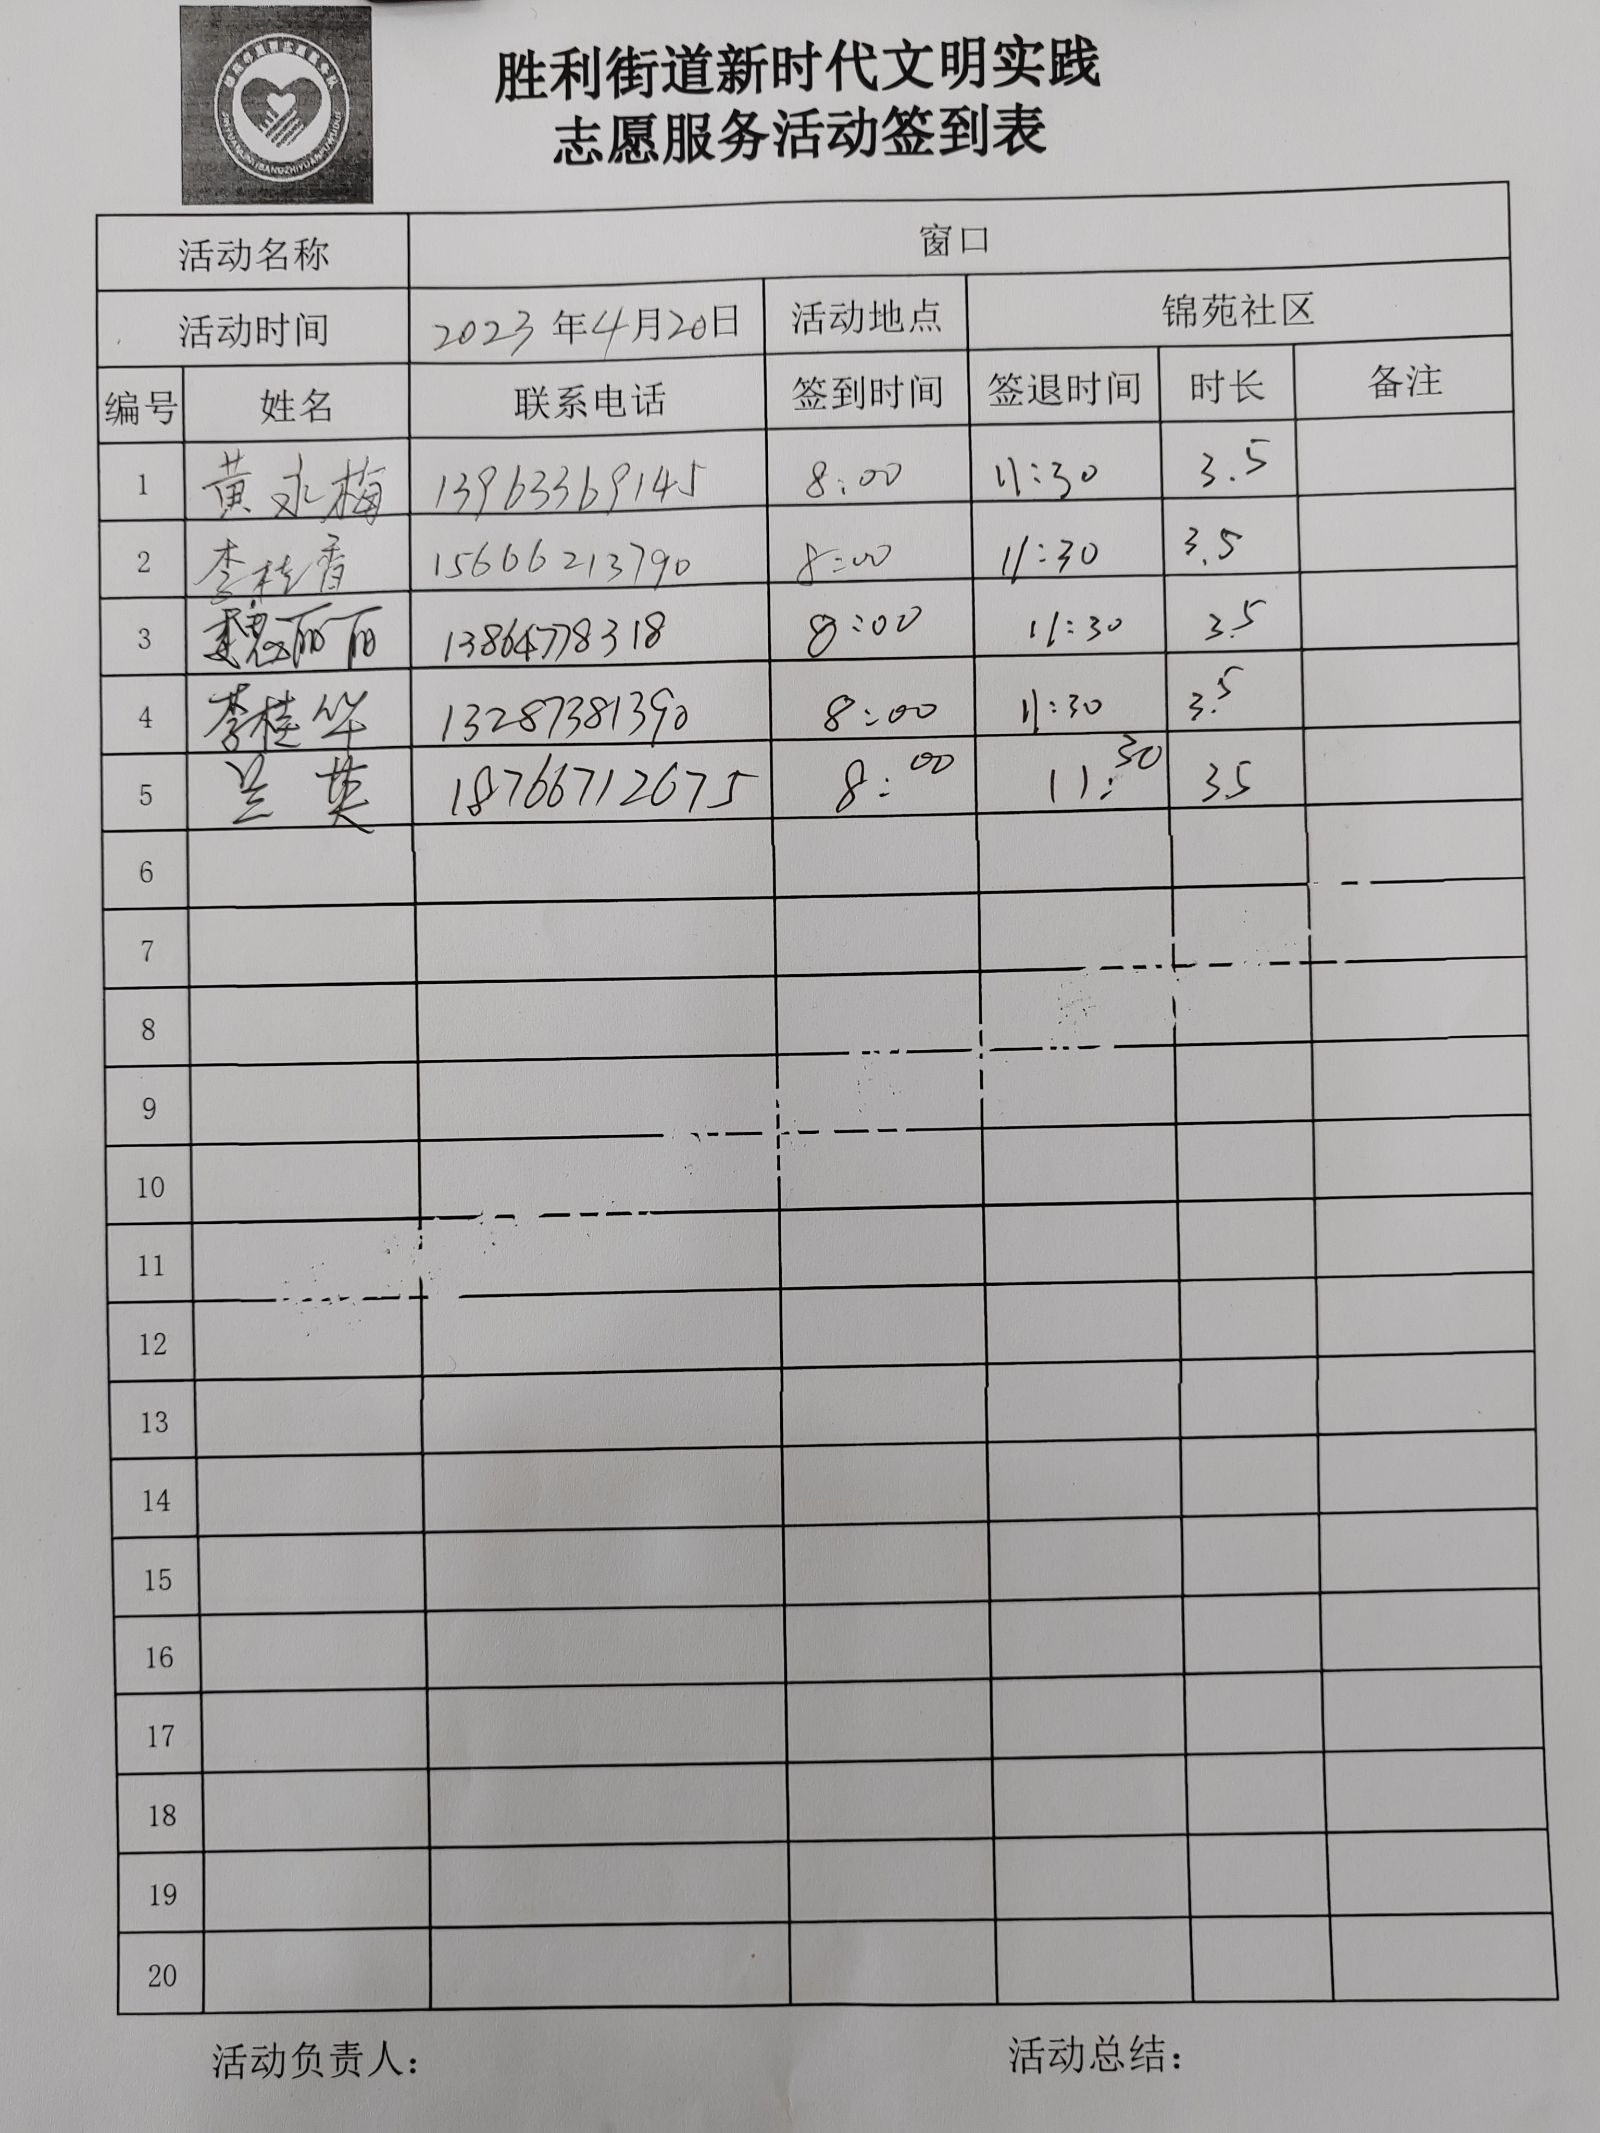 胜利街道新时代文明实践
志愿服务活动签到表
活动名称 窗口
活动时间 2023年4月20日 活动地点 锦苑社区
编号 姓名 联系电话 签到时间 签退时间 时长 备注
1 黄永梅 13963369145 8:00 11:30 3.5
2 李桂香 15666213790 8:00 11:30 3.5
3 魏丽丽 13864778318 8:00 11:30 3.5
4 李桂华 13287381390 8:00 11:30 3.5
5 兰英 18766712675 8:00 11:30 3.5
6
7
8
9
10
11
12
13
14
15
16
17
18
19
20
活动负责人： 活动总结：